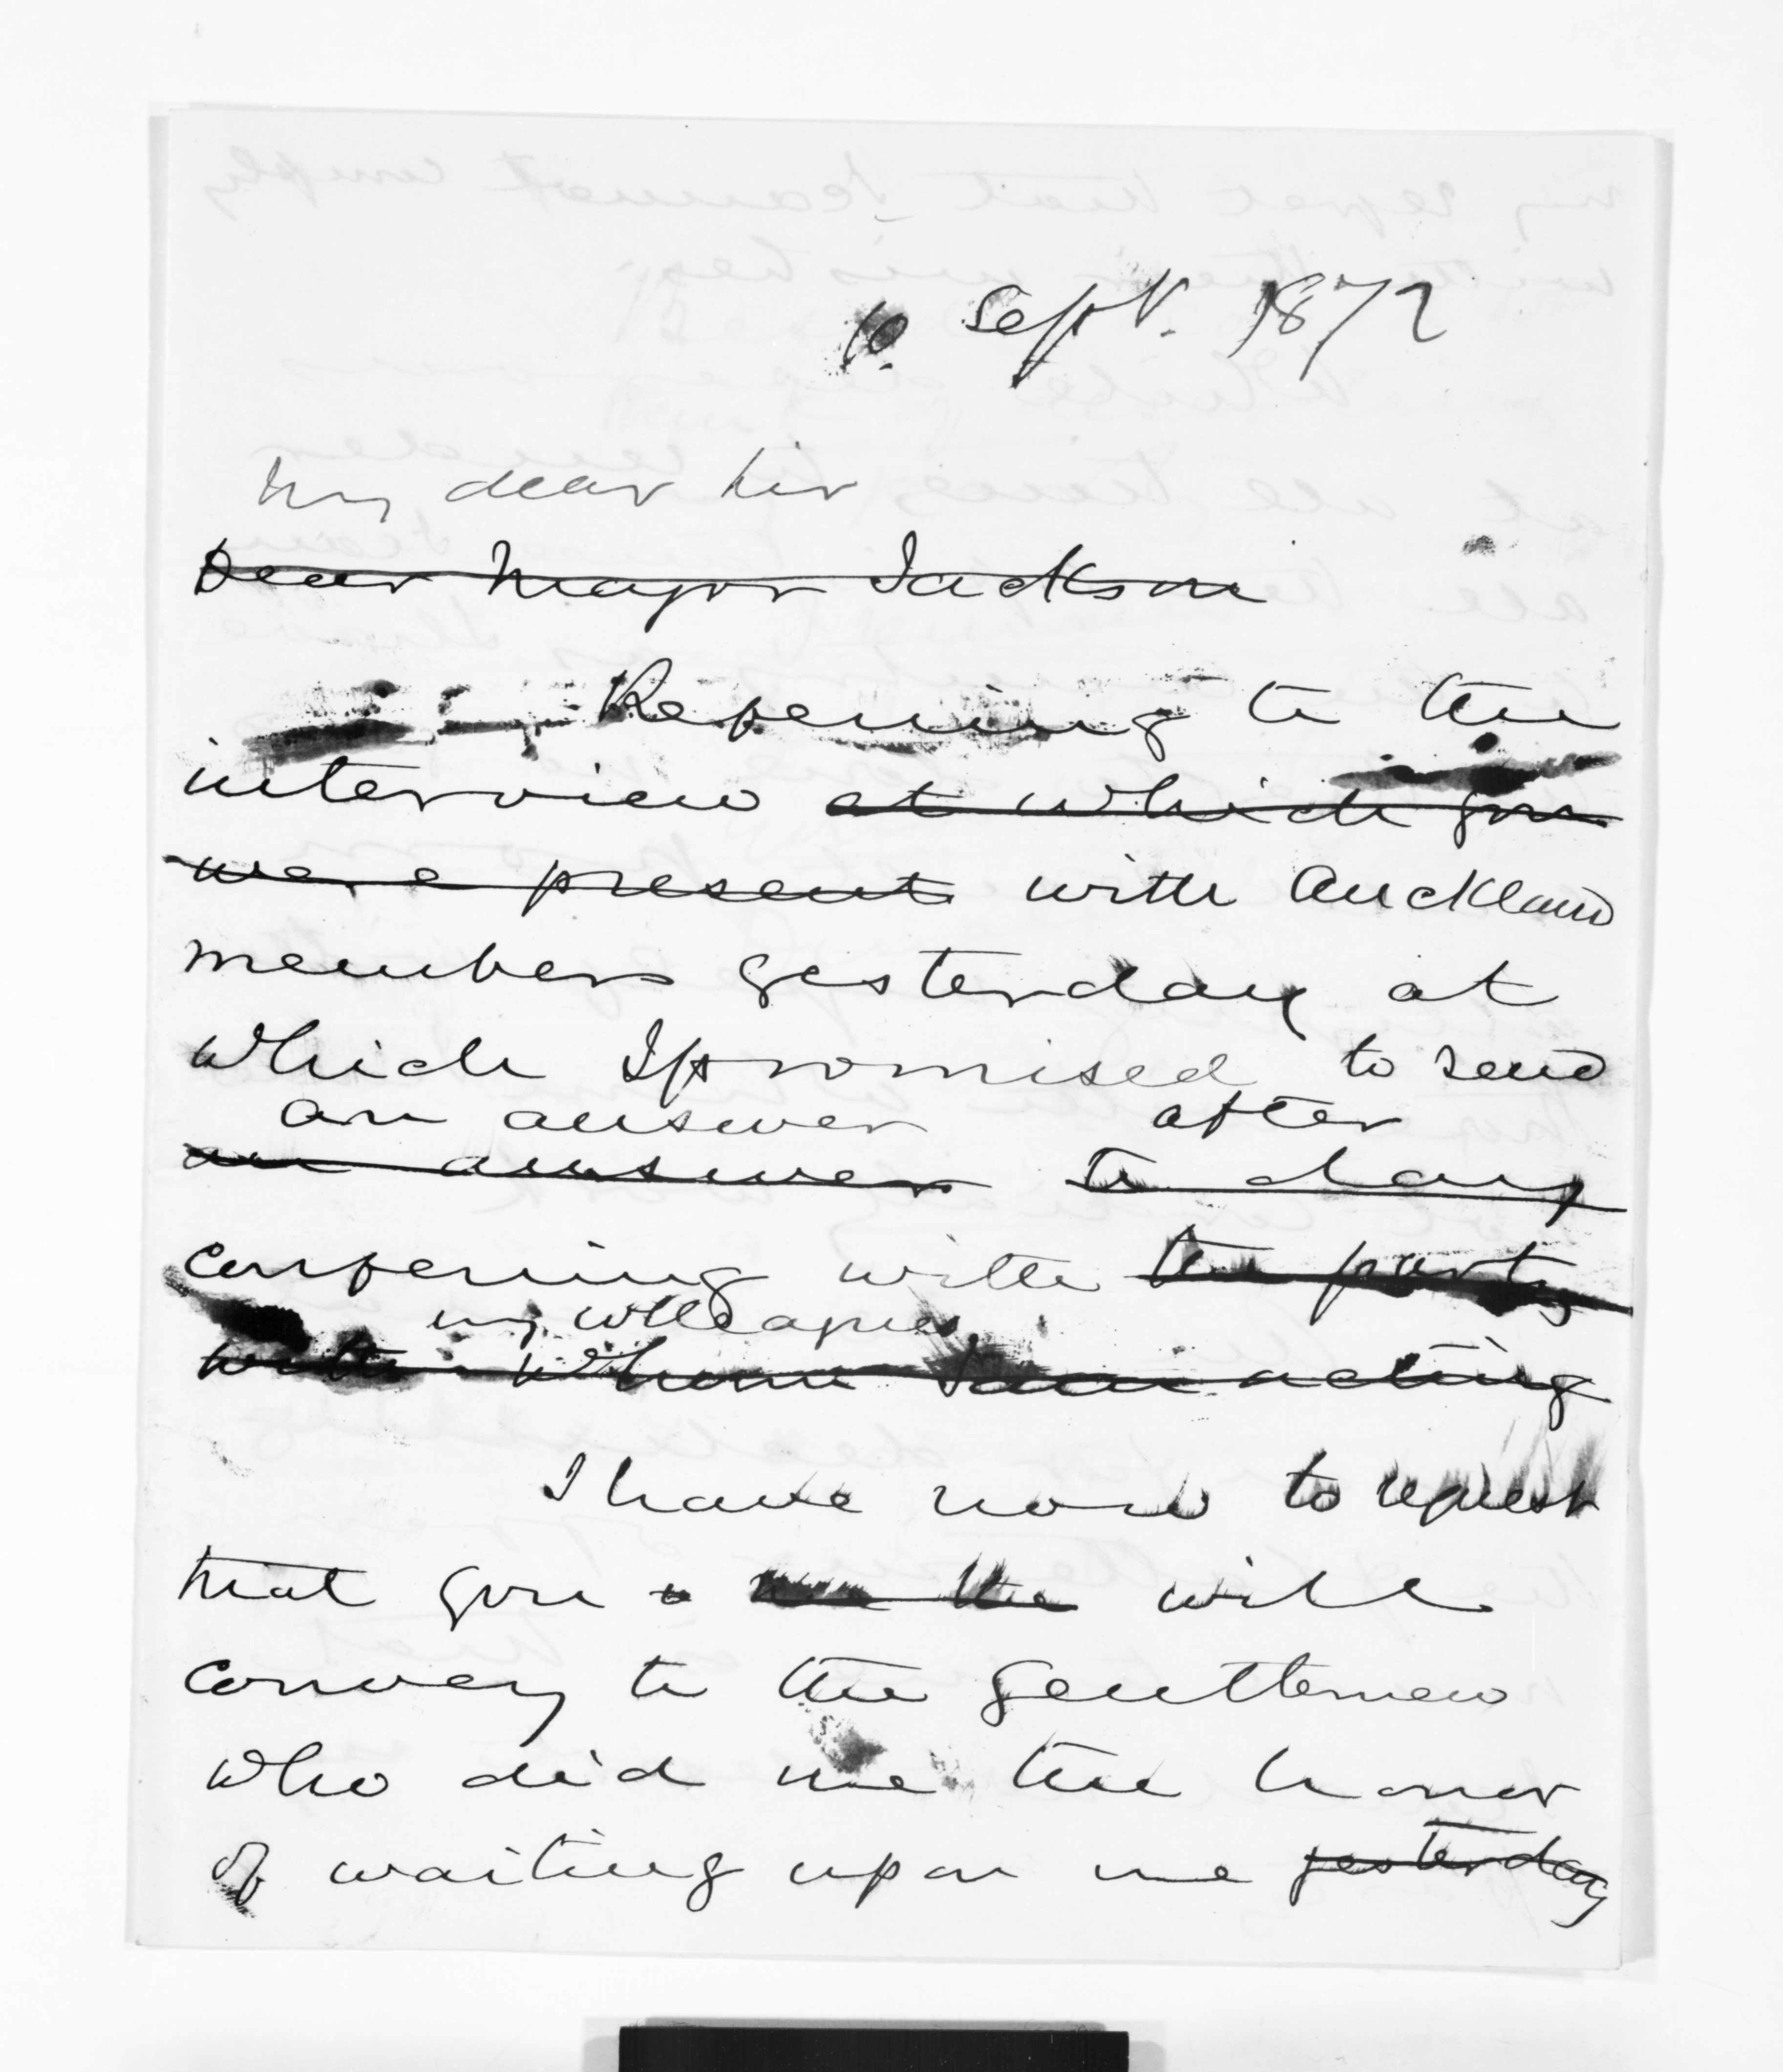 10. Sept. 1872
My dear Sir
Dear Major Jackson
Referring to the
interview at which you
were present with Auckland
members yesterday at
which I promised to send
an answer after
an answer to day
conferring with the party
my colleagues
with whom I am acting
I have now to request
that you the will
convey to the gentlemen
who did me the honor
of waiting upon me yesterday